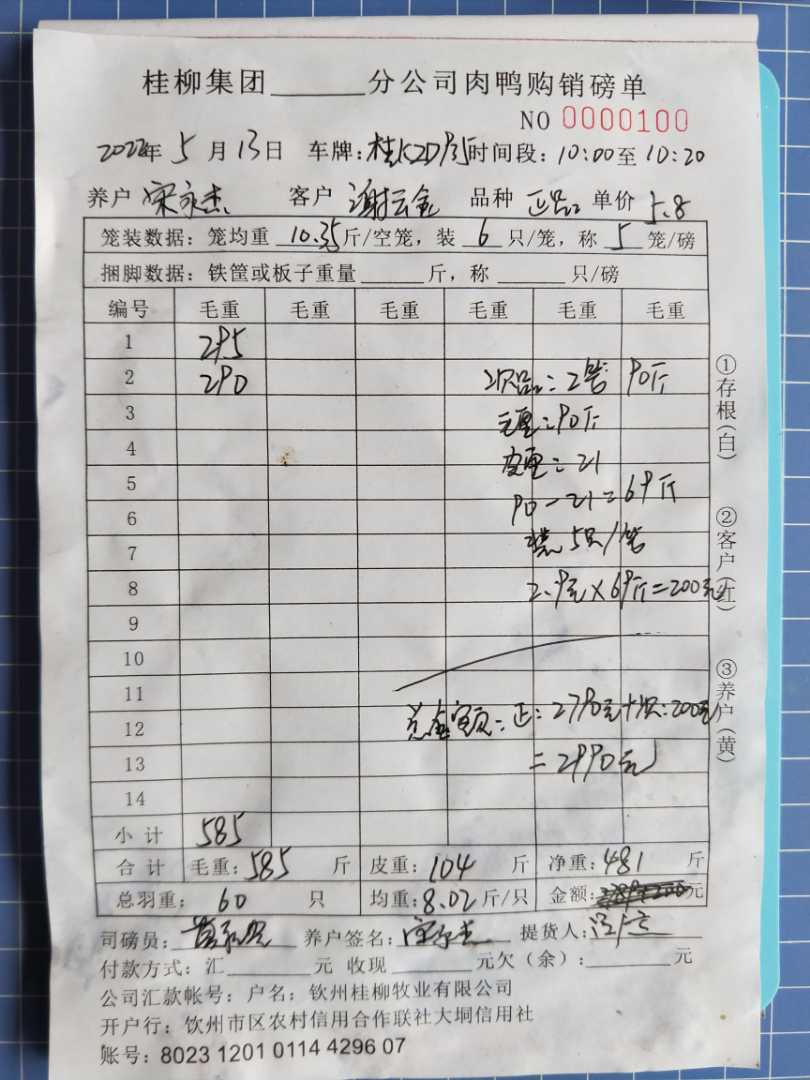 桂柳集团______分公司肉鸭购销磅单
NO 0000100
2022年 5 月 13 日 车牌: 时间段: 10:00 至 10:20
养户 宋永杰 客户 谢云金 品种 正品 单价 5.8
笼装数据: 笼均重 10.35 斤/空笼, 装 6 只/笼, 称 5 笼/磅
捆脚数据: 铁筐或板子重量______斤, 称______只/磅
编号 毛重 毛重 毛重 毛重 毛重 毛重
1 295
2 290 次品: 2笼 90斤
3 毛重: 90斤
4 皮重: 21
5 90-21=69斤
6
7 装5只/笼
8 2.9元×69斤=200元
9
10
11
12 总金额: 正: 2790元+次: 200元
13 =2990元
14
小计 585
合计 毛重: 585 斤 皮重: 104 斤 净重: 481 斤
总羽重: 60 只 均重: 8.02 斤/只 金额: 元
司磅员: 养户签名: 宋永杰 提货人:
付款方式: 汇______元 收现______元欠(余): ______元
公司汇款帐号: 户名: 钦州桂柳牧业有限公司
开户行: 钦州市区农村信用合作联社大垌信用社
账号: 8023 1201 0114 4296 07
①存根(白)
②客户(红)
③养户(黄)